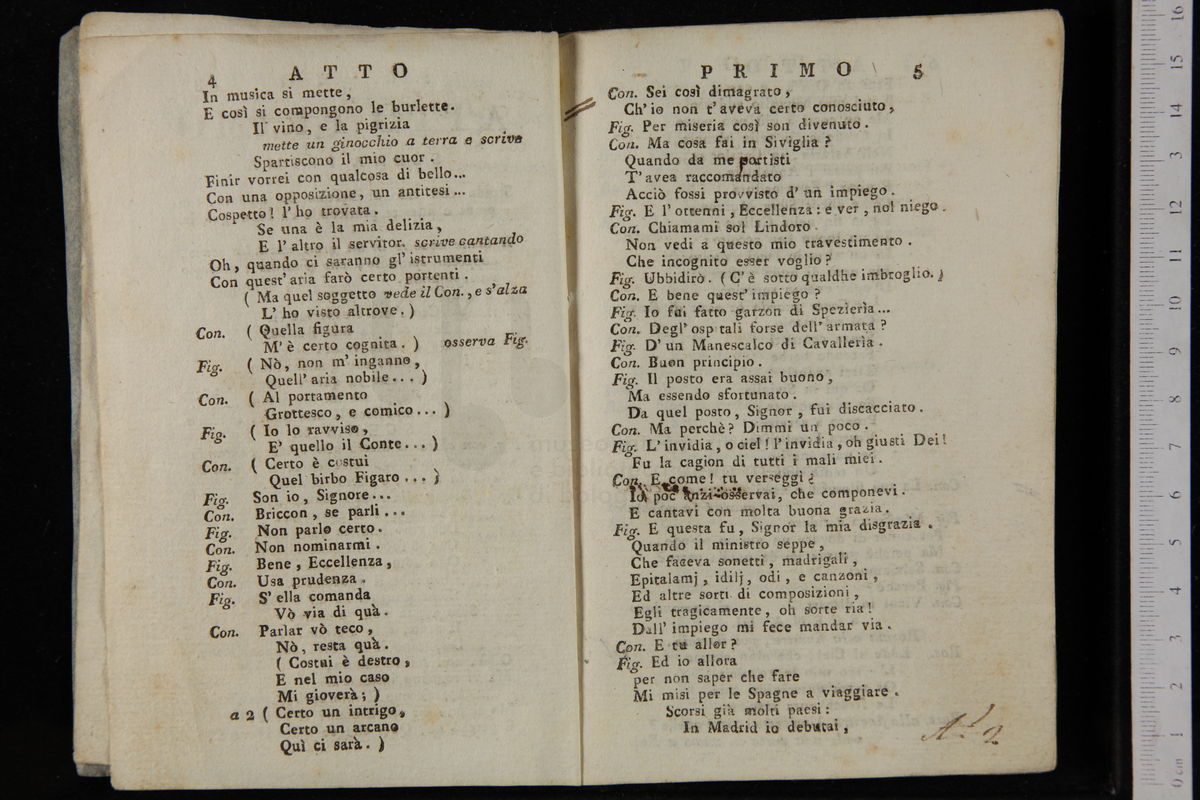 4
ATTO
In musica si mette,
E così si compongono le burlette.
Il vino, e la pigrizia
mette un ginocchio a terra e scrive
Spartiscono il mio cuor.
Finir vorrei con qualcosa di bello...
Con una opposizione, un antitesi...
Cospetto! l' ho trovata.
Se una è la mia delizia,
E l' altro il servitor. scrive cantando
Oh, quando ci saranno gl' istrumenti
Con quest' aria farò certo portenti.
( Ma quel soggetto vede il Con., e s'alza
L' ho visto altrove. )
Con. ( Quella figura
M' è certo cognita. ) osserva Fig.
Fig. ( Nò, non m' inganno,
Quell' aria nobile... )
Con. ( Al portamento
Grottesco, e comico... )
Fig. ( Io lo ravviso,
E' quello il Conte... )
Con. ( Certo è costui
Quel birbo Figaro... )
Fig. Son io, Signore...
Con. Briccon, se parli...
Fig. Non parlo certo.
Con. Non nominarmi.
Fig. Bene, Eccellenza,
Con. Usa prudenza.
Fig. S' ella comanda
Vò via di quà.
Con. Parlar vò teco,
Nò, resta quà.
( Costui è destro,
E nel mio caso
Mi gioverà; )
a 2 ( Certo un intrigo,
Certo un arcano
Quì ci sarà. )
PRIMO
5
Con. Sei così dimagrato,
Ch' io non t' aveva certo conosciuto,
Fig. Per miseria così son divenuto.
Con. Ma cosa fai in Siviglia?
Quando da me partisti
T' avea raccomandato
Acciò fossi provvisto d' un impiego.
Fig. E l' ottenni, Eccellenza: e ver, nol niego.
Con. Chiamami sol Lindoro.
Non vedi a questo mio travestimento.
Che incognito esser voglio?
Fig. Ubbidirò. ( C' è sotto qualche imbroglio. )
Con. E bene quest' impiego?
Fig. Io fui fatto garzon di Spezierìa...
Con. Degl' osp tali forse dell' armata?
Fig. D' un Manescalco di Cavallerìa.
Con. Buon principio.
Fig. Il posto era assai buono,
Ma essendo sfortunato.
Da quel posto, Signor, fui discacciato.
Con. Ma perchè? Dimmi un poco.
Fig. L' invidia, o ciel! l' invidia, oh giusti Dei!
Fu la cagion di tutti i mali miei.
Con. E come! tu verseggi?
Io poc' anzi osservai, che componevi.
E cantavi con molta buona grazia.
Fig. E questa fu, Signor la mia disgrazia.
Quando il ministro seppe,
Che faceva sonetti, madrigali,
Epitalamj, idilj, odi, e canzoni,
Ed altre sorti di composizioni,
Egli tragicamente, oh sorte ria!
Dall' impiego mi fece mandar via.
Con. E tu allor?
Fig. Ed io allora
per non saper che fare
Mi misi per le Spagne a viaggiare.
Scorsi già molti paesi:
In Madrid io debutai,